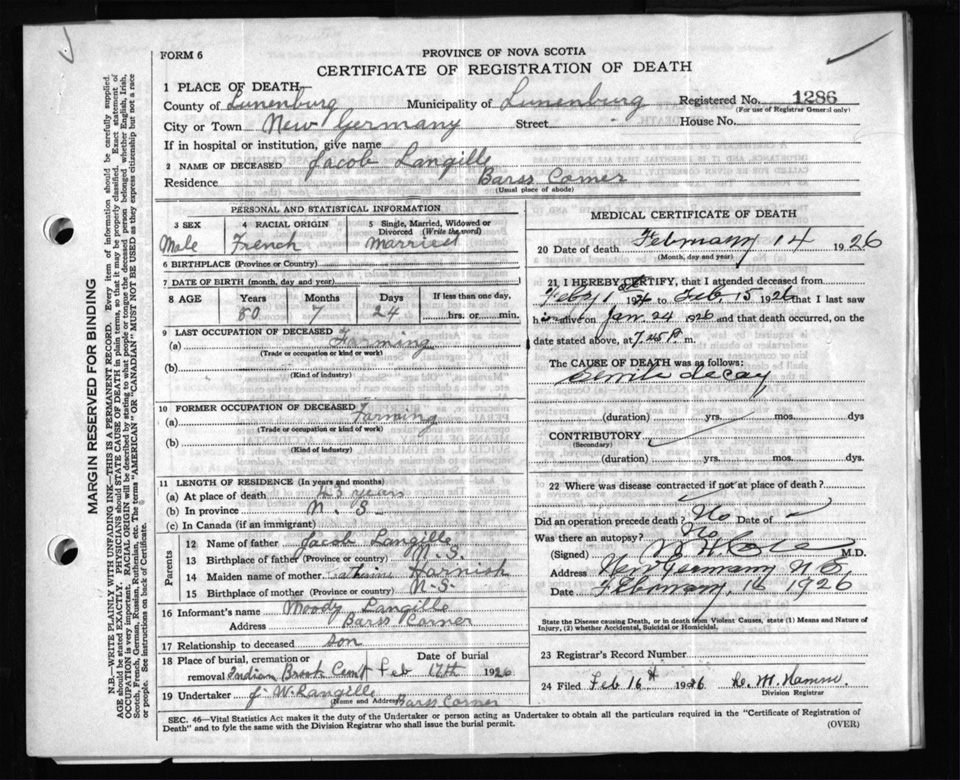 FORM 6
PROVINCE OF NOVA SCOTIA
CERTIFICATE OF REGISTRATION OF DEATH
1 PLACE OF DEATH—
County of Lunenburg Municipality of Lunenburg Registered No. 1286
(For use of Registrar General only)
City or Town New Germany Street House No.
If in hospital or institution, give name
2 NAME OF DECEASED Jacob Langille
Residence Barss Corner
(Usual place of abode)
PERSONAL AND STATISTICAL INFORMATION
3 SEX Male
4 RACIAL ORIGIN French
5 Single, Married, Widowed or Divorced (Write the word) Married
6 BIRTHPLACE (Province or Country)
7 DATE OF BIRTH (month, day and year)
8 AGE Years 80 Months 7 Days 24 If less than one day, hrs. or min.
9 LAST OCCUPATION OF DECEASED
(a) Farming
(Trade or occupation or kind or work)
(b)
(Kind of industry)
10 FORMER OCCUPATION OF DECEASED
(a) Farming
(Trade or occupation or kind or work)
(b)
(Kind of industry)
11 LENGTH OF RESIDENCE (In years and months)
(a) At place of death 43 years
(b) In province N. S.
(c) In Canada (if an immigrant)
Parents
12 Name of father Jacob Langille
13 Birthplace of father (Province or country) N. S.
14 Maiden name of mother Catherine Harnish
15 Birthplace of mother (Province or country) N. S.
16 Informant's name Moody Langille
Address Barss Corner
17 Relationship to deceased son
18 Place of burial, cremation or removal Indian Brook Cemt Date of burial Feb 17th 1926
19 Undertaker J. W. Langille
(Name and Address) Barss Corner
MEDICAL CERTIFICATE OF DEATH
20 Date of death February 14 1926
(Month, day and year)
21 I HEREBY CERTIFY, that I attended deceased from
Feby 1st 192 to Feb. 15 1926 that I last saw
him alive on Jan. 24 1926 and that death occurred, on the
date stated above, at 7.45 P. m.
The CAUSE OF DEATH was as follows:
Senile decay
(duration) yrs. mos. dys
CONTRIBUTORY
(Secondary)
(duration) yrs. mos. dys.
22 Where was disease contracted if not at place of death?
Did an operation precede death? No Date of
Was there an autopsy? No
(Signed) M.D.
Address New Germany N.S.
Date February, 16 1926
State the Disease causing Death, or in death from Violent Causes, state (1) Means and Nature of Injury, (2) whether Accidental, Suicidal or Homicidal.
23 Registrar's Record Number
24 Filed Feb 16th 1926
Division Registrar
SEC. 46—Vital Statistics Act makes it the duty of the Undertaker or person acting as Undertaker to obtain all the particulars required in the "Certificate of Registration of
Death" and to fyle the same with the Division Registrar who shall issue the burial permit. (OVER)
MARGIN RESERVED FOR BINDING
N.B.—WRITE PLAINLY WITH UNFADING INK—THIS IS A PERMANENT RECORD. Every item of information should be carefully supplied.
AGE should be stated EXACTLY. PHYSICIANS should STATE CAUSE OF DEATH in plain terms, so that it may be properly classified. Exact statement of
OCCUPATION is very important. RACIAL ORIGIN will be described by stating to what people or tongue the deceased person belonged whether English, Irish,
Scotch, French, German, Russian, Ruthenian, etc. The terms "AMERICAN" OR "CANADIAN" MUST NOT BE USED as they express citizenship but not a race
or people. See instructions on back of Certificate.